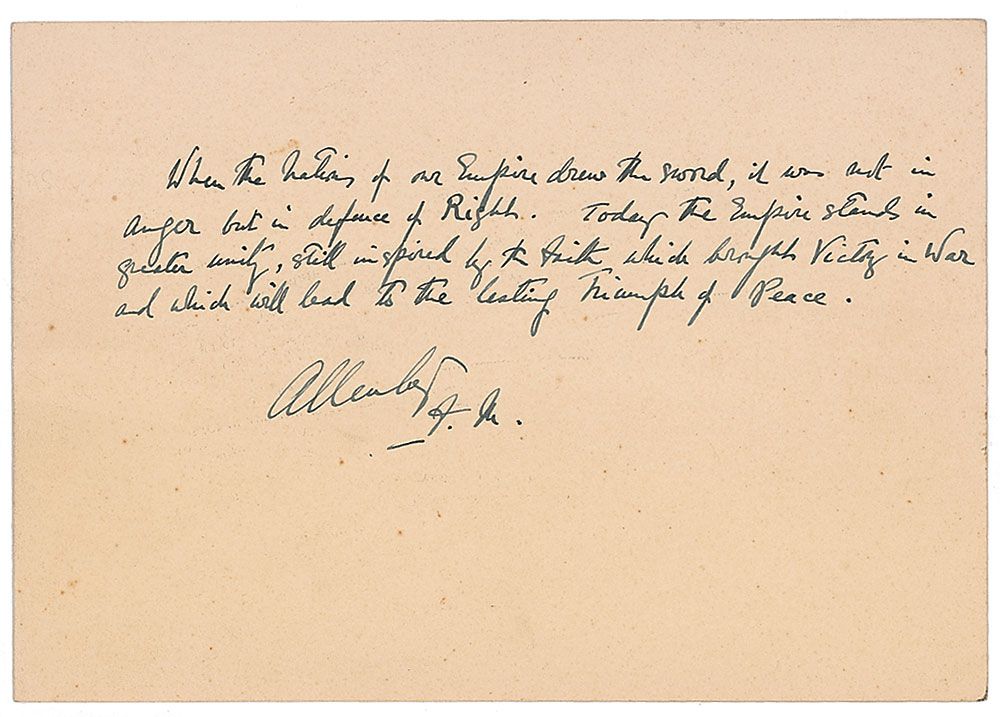 When the Nations of our Empire drew the sword, it was not in
anger but in defence of Right. Today the Empire stands in
greater unity, still inspired by the faith which brought Victory in War
and which will lead to the lasting Triumph of Peace.
Allenby
F. M.